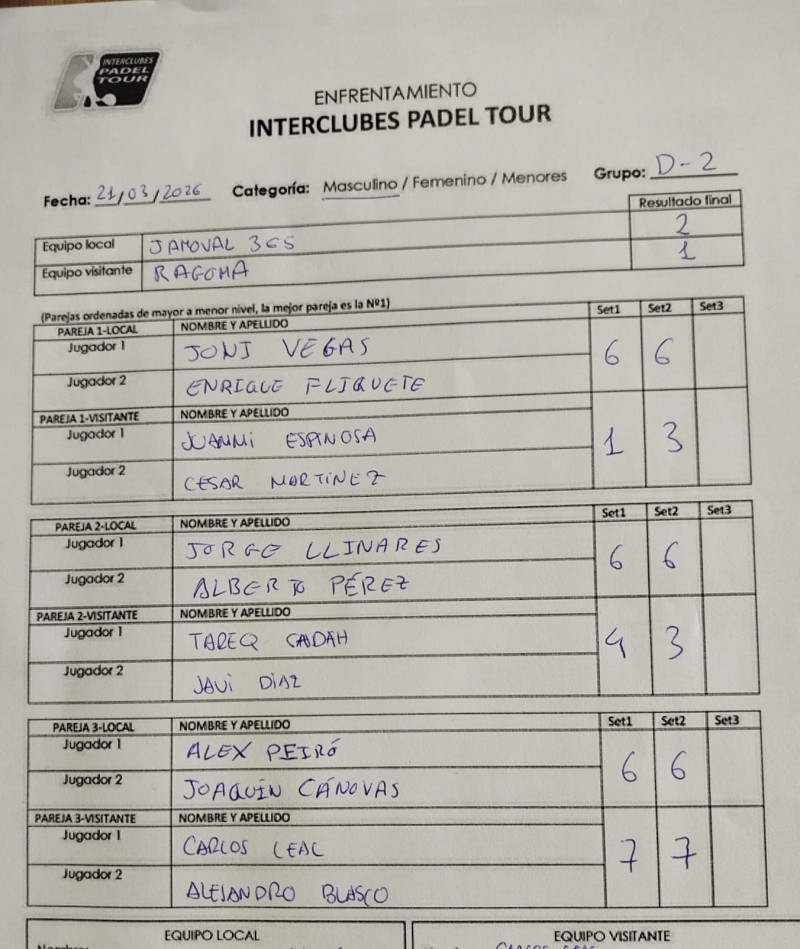 INTERCLUBES
PADEL
TOUR
ENFRENTAMIENTO
INTERCLUBES PADEL TOUR
Fecha: 21/03/2026 Categoría: Masculino / Femenino / Menores Grupo: D-2
Resultado final
Equipo local JAMOVAL 365 2
Equipo visitante RAGOMA 1
(Parejas ordenadas de mayor a menor nivel, la mejor pareja es la Nº1)
PAREJA 1-LOCAL NOMBRE Y APELLIDO Set1 Set2 Set3
Jugador 1 JONI VEGAS 6 6
Jugador 2 ENRIQUE FLIQUETE
PAREJA 1-VISITANTE NOMBRE Y APELLIDO
Jugador 1 JUANMi ESPINOSA 1 3
Jugador 2 CESAR MARTINEZ
PAREJA 2-LOCAL NOMBRE Y APELLIDO Set1 Set2 Set3
Jugador 1 JORGE LLINARES 6 6
Jugador 2 ALBERTO PÉREZ
PAREJA 2-VISITANTE NOMBRE Y APELLIDO
Jugador 1 TAREQ 4 3
Jugador 2 JAVi DiAZ
PAREJA 3-LOCAL NOMBRE Y APELLIDO Set1 Set2 Set3
Jugador 1 ALEX PEIRÓ 6 6
Jugador 2 JOAQUÍN CÁNOVAS
PAREJA 3-VISITANTE NOMBRE Y APELLIDO
Jugador 1 CARLOS LEAL 7 7
Jugador 2 ALEJANDRO BLASCO
EQUIPO LOCAL EQUIPO VISITANTE